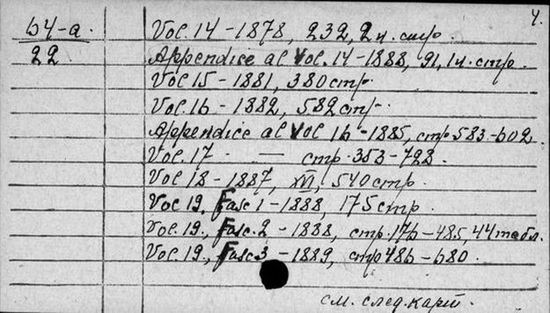 4.
64-a. Vol. 14 - 1878, 232, 2 н. стр.
22 Appendice al Vol. 14 - 1888, 91, 1 н. стр.
Vol 15 - 1881, 380 стр.
Vol. 16 - 1882, 582 стр.
Appendice al Vol 16 - 1885, стр 583-602.
Vol. 17 - — стр. 353-722.
Vol 18 - 1887, XVI, 540 стр.
Vol 19, Fasc. 1 - 1888, 175 стр.
Vol. 19, Fasc. 2 - 1888, стр. 176-485, 44 табл.
Vol. 19, Fasc. 3 - 1889, стр 486-680.
см. след. карт.